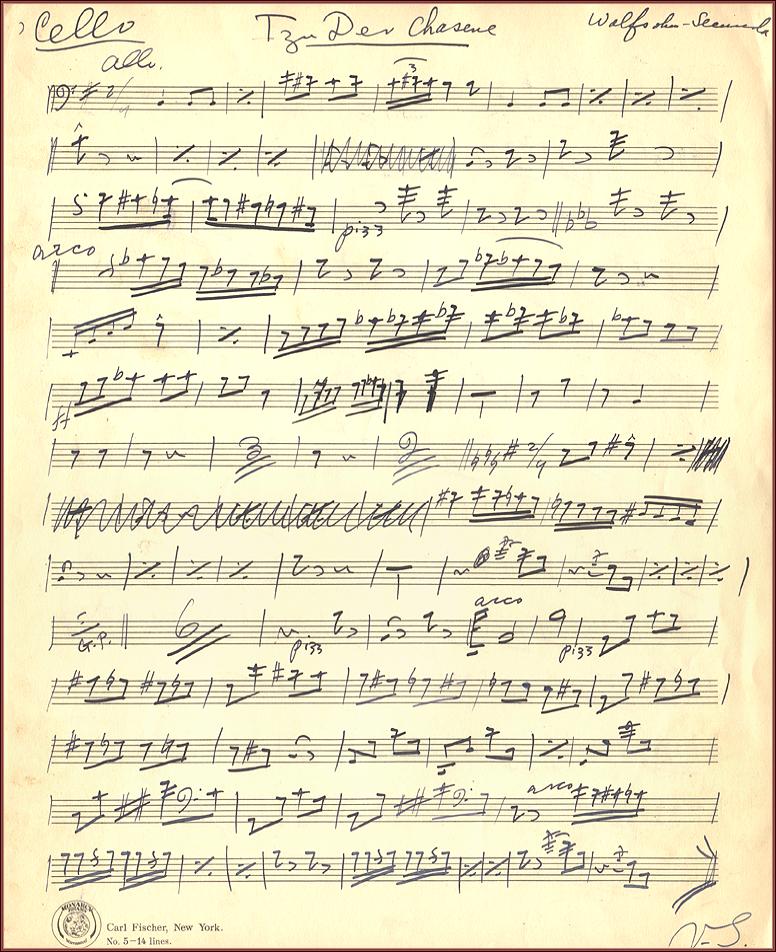 Cello Tzu Der Chasene Wolfsohn-Secunda
allo.
2/4
3
pizz
arco
ff
2 2/4
arco
G.P. 6 pizz pizz
arco
V.S.
MONARCH
Carl Fischer, New York.
No. 5-14 lines.